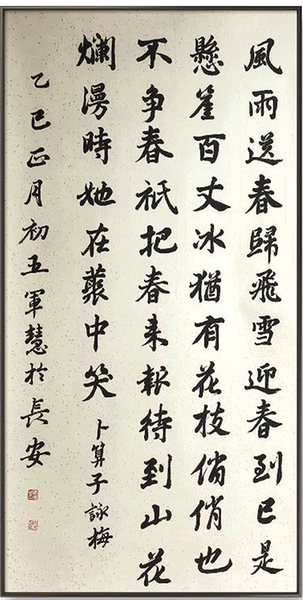 風雨送春歸飛雪迎春到已是
懸崖百丈冰猶有花枝俏俏也
不争春祇把春来報待到山花
爛漫時她在藂中笑 卜算子詠梅
乙巳正月初五軍慧於長安